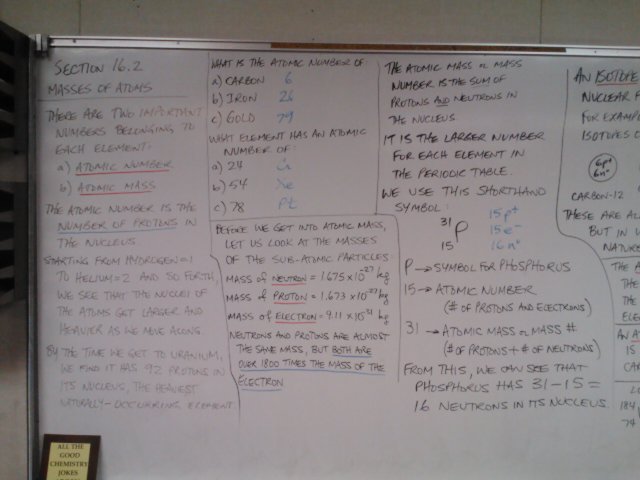 SECTION 16.2
MASSES OF ATOMS
THERE ARE TWO IMPORTANT
NUMBERS BELONGING TO
EACH ELEMENT:
a) ATOMIC NUMBER
b) ATOMIC MASS
THE ATOMIC NUMBER IS THE
NUMBER OF PROTONS IN
THE NUCLEUS.
STARTING FROM HYDROGEN=1
TO HELIUM=2 AND SO FORTH,
WE SEE THAT THE NUCLEI OF
THE ATOMS GET LARGER AND
HEAVIER AS WE MOVE ALONG.
BY THE TIME WE GET TO URANIUM,
WE FIND IT HAS 92 PROTONS IN
ITS NUCLEUS, THE HEAVIEST
NATURALLY-OCCURRING ELEMENT.
WHAT IS THE ATOMIC NUMBER OF:
a) CARBON 6
b) IRON 26
c) GOLD 79
WHAT ELEMENT HAS AN ATOMIC
NUMBER OF:
a) 24 Cr
b) 54 Xe
c) 78 Pt
BEFORE WE GET INTO ATOMIC MASS,
LET US LOOK AT THE MASSES
OF THE SUB-ATOMIC PARTICLES:
MASS of NEUTRON = 1.675 x 10^-27 kg
MASS of PROTON = 1.673 x 10^-27 kg
MASS of ELECTRON = 9.11 x 10^-31 kg
NEUTRONS AND PROTONS ARE ALMOST
THE SAME MASS, BUT BOTH ARE
OVER 1800 TIMES THE MASS OF THE
ELECTRON
THE ATOMIC MASS or MASS
NUMBER IS THE SUM OF
PROTONS AND NEUTRONS IN
THE NUCLEUS.
IT IS THE LARGER NUMBER
FOR EACH ELEMENT IN
THE PERIODIC TABLE.
WE USE THIS SHORTHAND
SYMBOL:
31 15p+
P 15e-
15 16n°
P → SYMBOL FOR PHOSPHORUS
15 → ATOMIC NUMBER
(# OF PROTONS AND ELECTRONS)
31 → ATOMIC MASS or MASS #
(# OF PROTONS + # OF NEUTRONS)
FROM THIS, WE CAN SEE THAT
PHOSPHORUS HAS 31-15=
16 NEUTRONS IN ITS NUCLEUS.
AN ISOTOPE
NUCLEAR
FOR EXAMP
ISOTOPES
6p+
6n°
CARBON-12
THESE ARE AL
BUT IN
NATUR
THE A
THE
THE
ELE
AN A
IS
CAR
184
74
ALL THE
GOOD
CHEMISTRY
JOKES